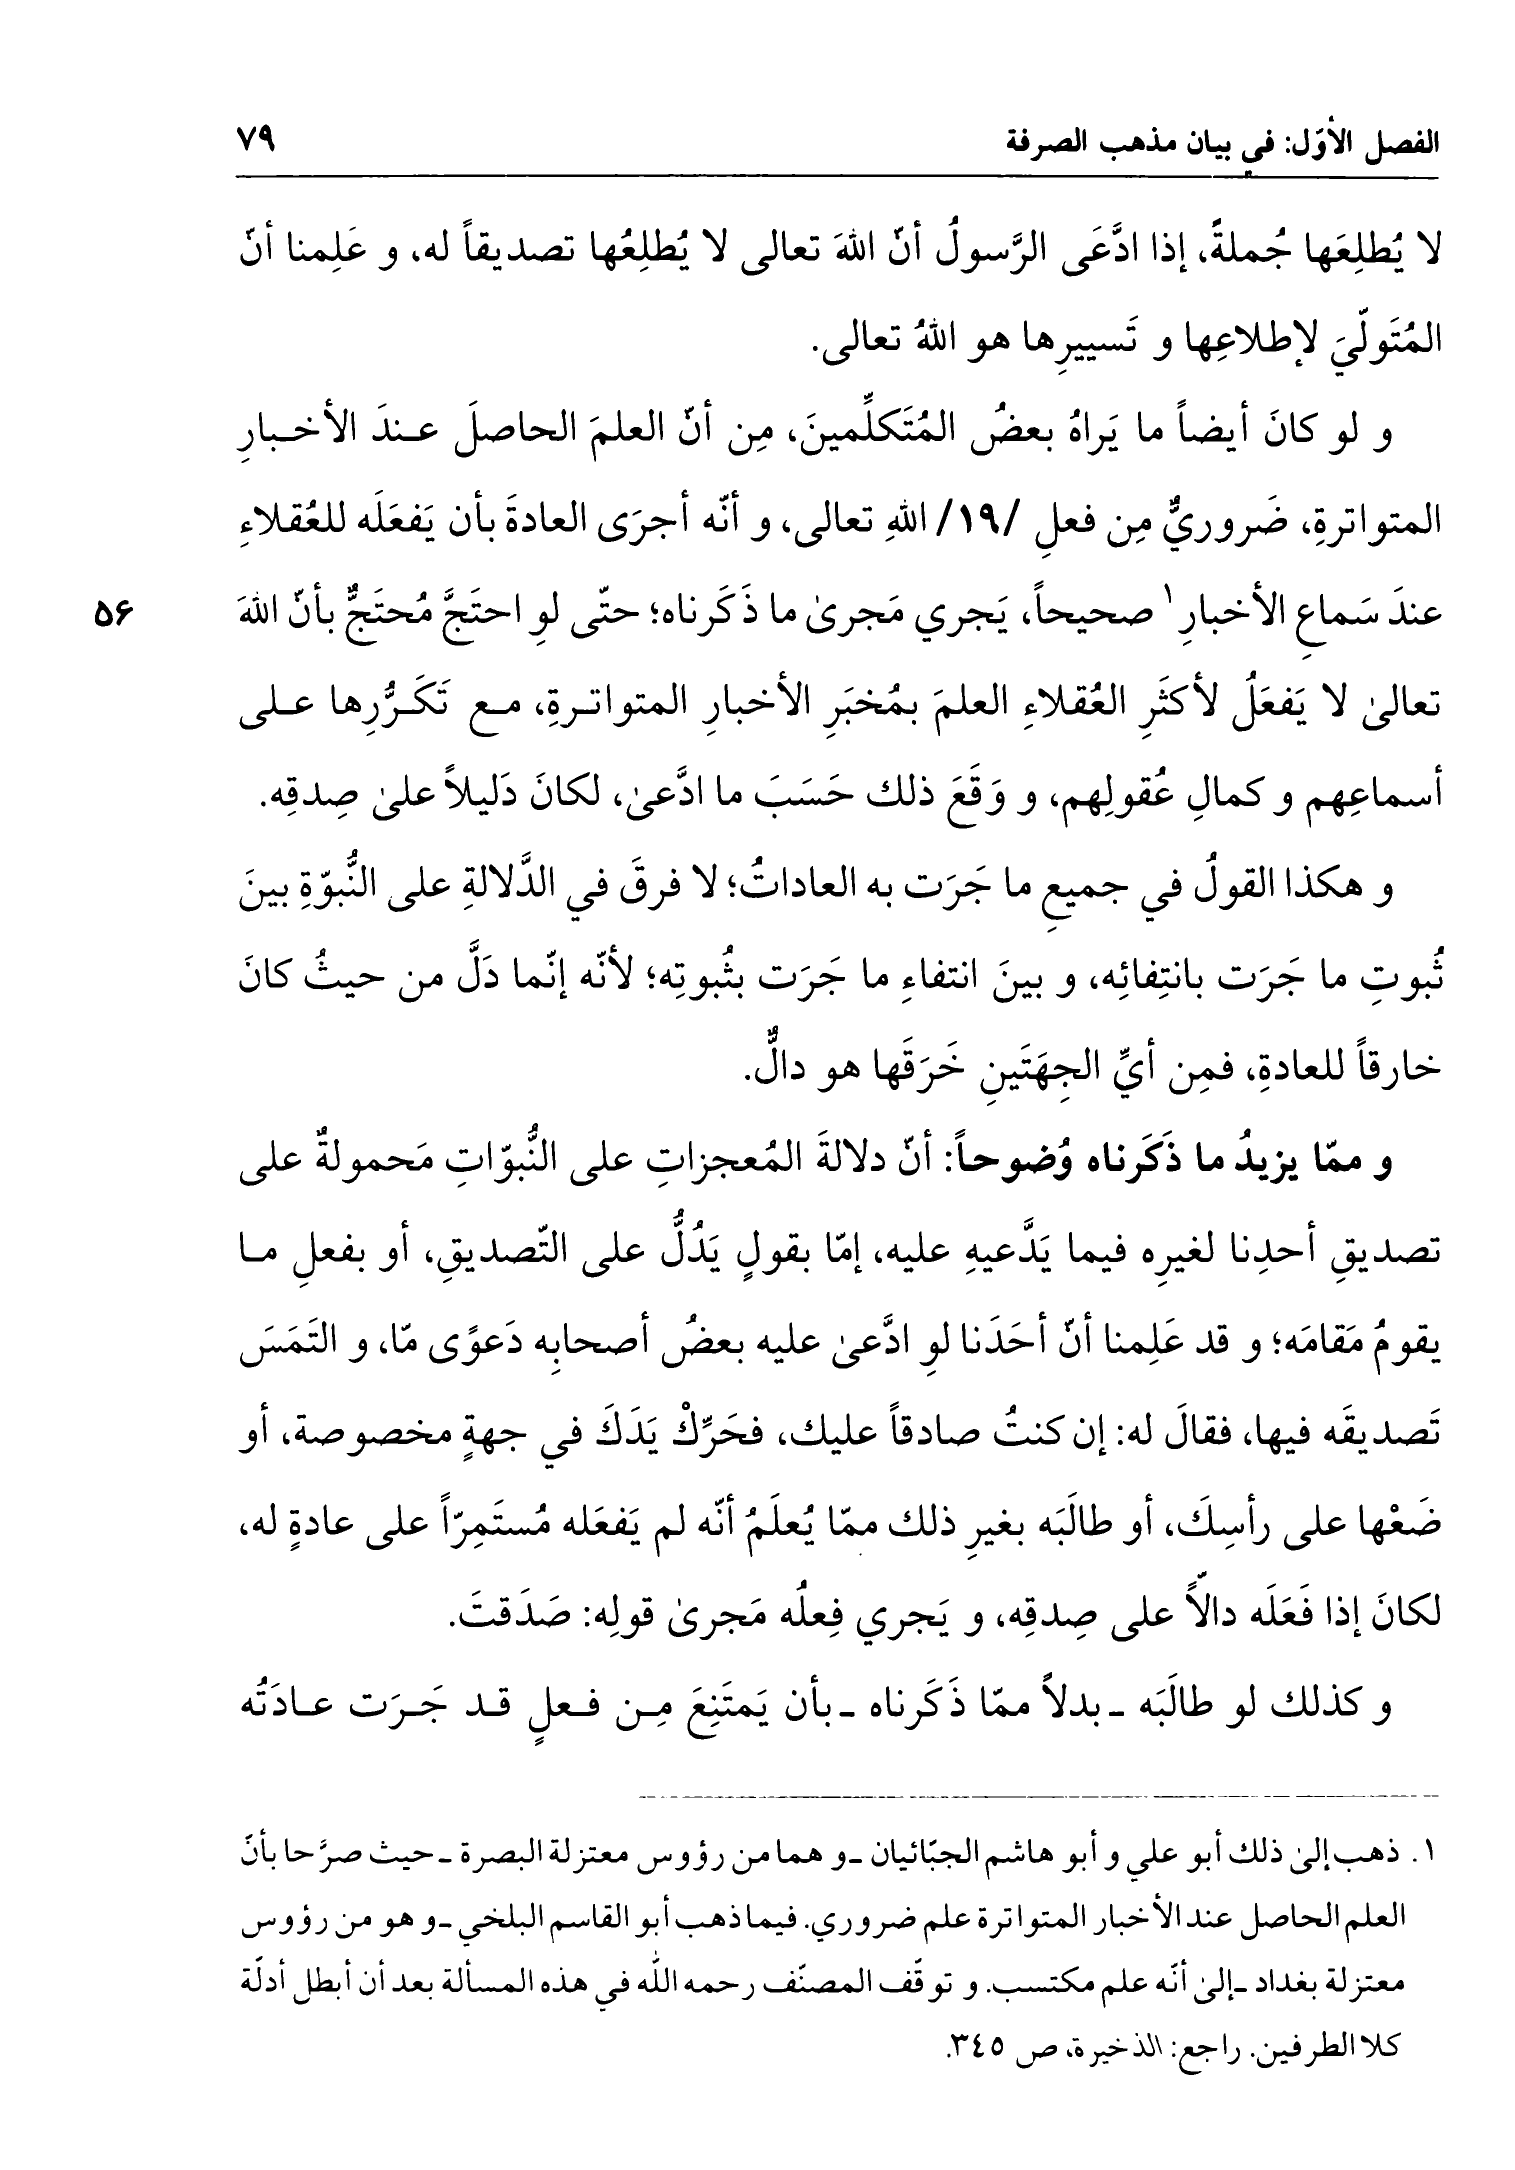 الفصل الأوّل: في بيان مذهب الصرفة ٧٩
لا يُطلِعَها جُملةً، إذا ادَّعَى الرَّسولُ أنّ اللهَ تعالى لا يُطلِعُها تصديقاً له، و عَلِمنا أنّ
المُتَولّيَ لإطلاعِها و تَسييرِها هو اللهُ تعالى.
و لو كانَ أيضاً ما يَراهُ بعضُ المُتَكلِّمينَ، مِن أنّ العلمَ الحاصلَ عـندَ الأخـبارِ
المتواترةِ، ضَروريٌّ مِن فعلِ /١٩/ اللهِ تعالى، و أنّه أجرَى العادةَ بأن يَفعَلَه للعُقلاءِ
عندَ سَماعِ الأخبارِ١ صحيحاً، يَجري مَجرىٰ ما ذَكَرناه؛ حتّى لوِ احتَجَّ مُحتَجٌّ بأنّ اللهَ ۵۶
تعالىٰ لا يَفعَلُ لأكثَرِ العُقلاءِ العلمَ بمُخبَرِ الأخبارِ المتواتـرةِ، مـع تَكَـرُّرِها عـلى
أسماعِهم و كمالِ عُقولِهم، و وَقَعَ ذلك حَسَبَ ما ادَّعىٰ، لكانَ دَليلاً علىٰ صِدقِه.
و هكذا القولُ في جميعِ ما جَرَت به العاداتُ؛ لا فرقَ في الدَّلالةِ على النُّبوّةِ بينَ
ثُبوتِ ما جَرَت بانتِفائِه، و بينَ انتفاءِ ما جَرَت بثُبوتِه؛ لأنّه إنّما دَلَّ من حيثُ كانَ
خارقاً للعادةِ، فمِن أيِّ الجِهَتَينِ خَرَقَها هو دالٌّ.
و ممّا يزيدُ ما ذَكَرناه وُضوحاً: أنّ دلالةَ المُعجزاتِ على النُّبوّاتِ مَحمولةٌ على
تصديقِ أحدِنا لغيرِه فيما يَدَّعيهِ عليه، إمّا بقولٍ يَدُلُّ على التّصديقِ، أو بفعلِ مـا
يقومُ مَقامَه؛ و قد عَلِمنا أنّ أحَدَنا لوِ ادَّعىٰ عليه بعضُ أصحابِه دَعوًى مّا، و التَمَسَ
تَصديقَه فيها، فقالَ له: إن كنتُ صادقاً عليك، فحَرِّكْ يَدَكَ في جهةٍ مخصوصة، أو
ضَعْها على رأسِكَ، أو طالَبَه بغيرِ ذلك ممّا يُعلَمُ أنّه لم يَفعَله مُستَمِرّاً على عادةٍ له،
لكانَ إذا فَعَلَه دالّاً على صِدقِه، و يَجري فِعلُه مَجرىٰ قولِه: صَدَقتَ.
و كذلك لو طالَبَه ـ بدلاً ممّا ذَكَرناه ـ بأن يَمتَنِعَ مِـن فـعلٍ قـد جَـرَت عـادَتُه
١. ذهب إلىٰ ذلك أبو علي و أبو هاشم الجبّائيان ـ و هما من رؤوس معتزلة البصرة ـ حيث صرَّحا بأنّ
العلم الحاصل عند الأخبار المتواترة علم ضروري. فيما ذهب أبو القاسم البلخي ـ و هو من رؤوس
معتزلة بغداد ـ إلىٰ أنّه علم مكتسب. و توقّف المصنّف رحمه الله في هذه المسألة بعد أن أبطل أدلّة
كلا الطرفين. راجع: الذخيرة، ص ٣٤٥.